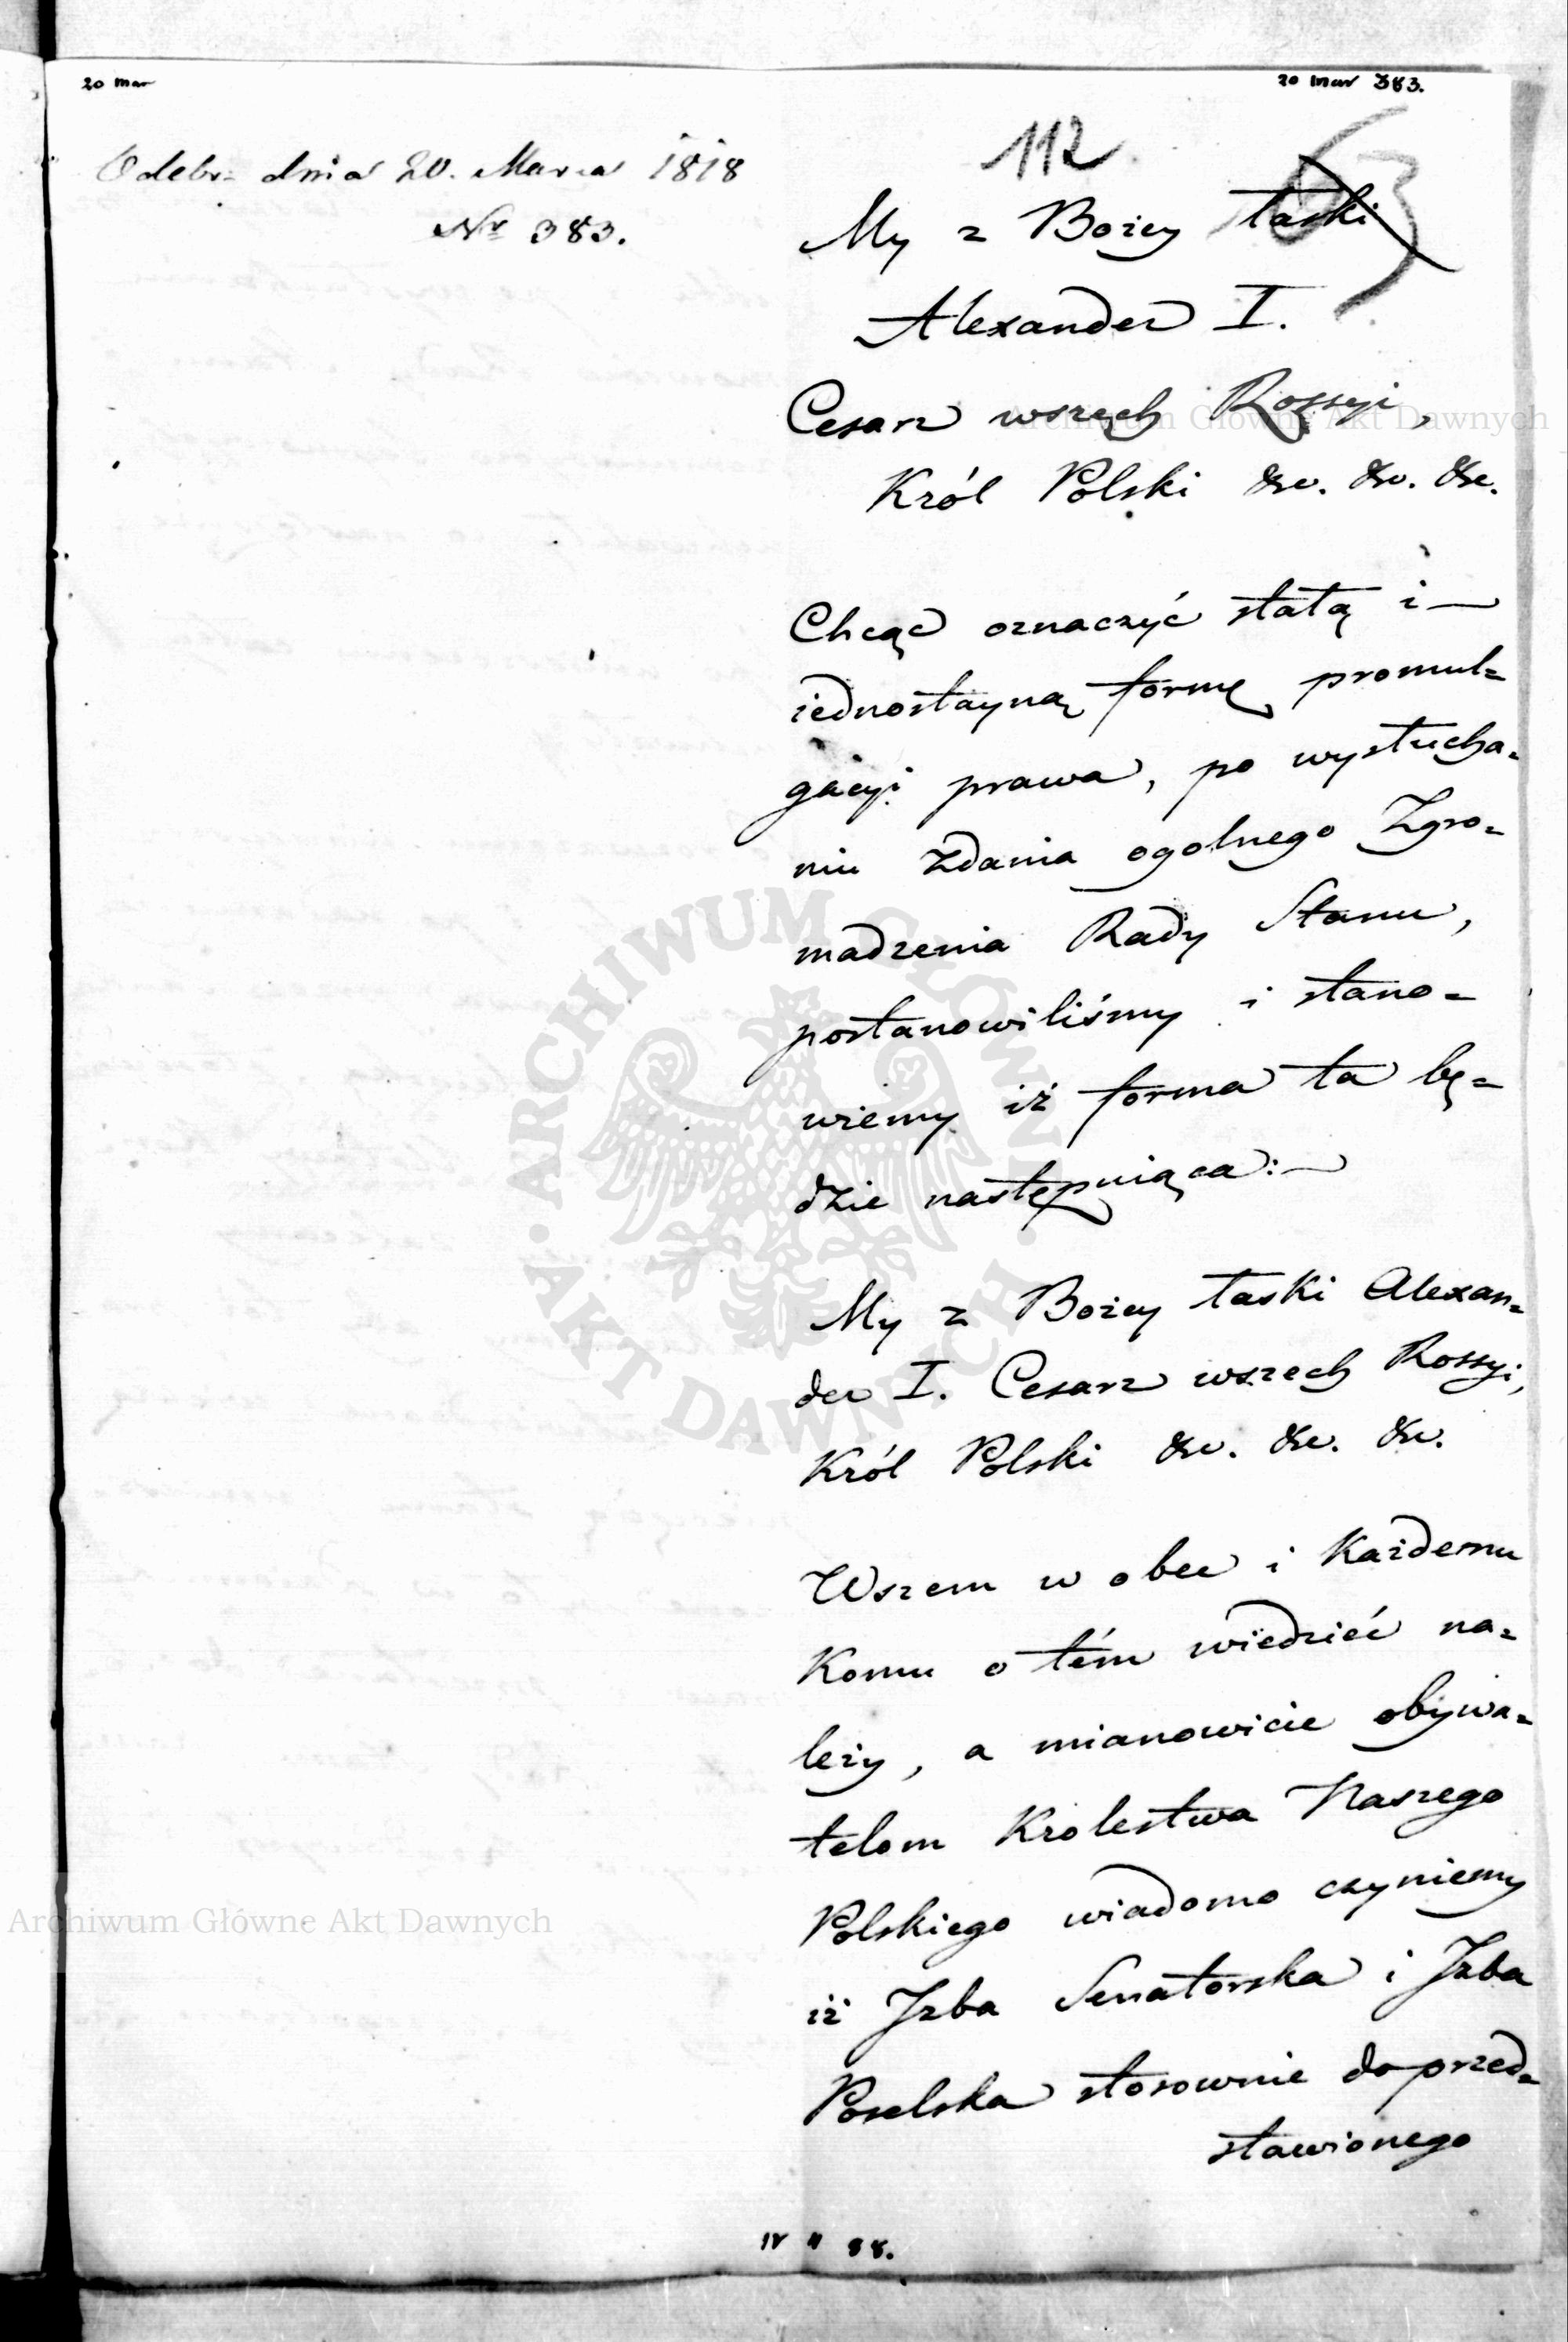 20 mar
20 mar 383.
Odebr= dnia 20. Marca 1818
Nr 383.
112
63
My z Bożey łaski
Alexander I.
Cesarz wszech Rossyi,
Król Polski &c. &c. &c.
Chcąc oznaczyć stałą i —
iednostayną formę promul=
gacyi prawa, po wysłucha=
niu zdania ogolnego Zgro=
madzenia Rady Stanu,
postanowiliśmy i stano=
wiemy iż forma ta bę=
dzie następuiąca: —
My z Bożey łaski Alexan=
der I. Cesarz wszech Rossyi,
Król Polski &c. &c. &c.
Wszem w obec i Każdemu
Komu o tém wiedzieć na=
leży, a mianowicie obywa=
telom Krolestwa Naszego
Polskiego wiadomo czyniemy
iż Jzba Senatorska i Jzba
Poselska stosownie do przed=
stawionego
Archiwum Główne Akt Dawnych
ARCHIWUM GŁÓWNE AKT DAWNYCH
Archiwum Główne Akt Dawnych